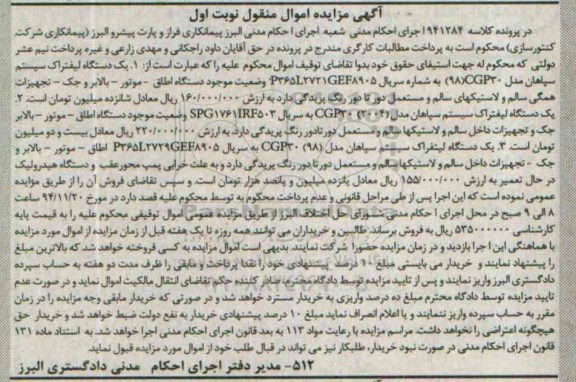 آگهی مزایده اموال منقول نوبت اول
در پرونده کلاسه ۹۴۱۲۸۴ اجرای احکام مدنی شعبه اجرای احکام مدنی البرز پیمانکاری فراز و پارت پیشرو البرز (پیمانکاری شرکت
کنتورسازی) محکوم است به پرداخت مطالبات کارگری مندرج در پرونده در حق آقایان داود راجکانی و مهدی زارعی و غیره پرداخت نیم عشر
دولتی که محکوم له جهت استیفای حقوق خود بدوا تقاضای توقیف اموال محکوم علیه را که عبارت است از: ۱. یک دستگاه لیفتراک سیستم
سپاهان مدل CGP۳۰ (۹۸) به شماره سریال P۳۶۵L۲۷۲۱GEF۸۹۰۵ وضعیت موجود دستگاه اطاق - موتور - بالابر و جک - تجهیزات
همگی سالم و لاستیکهای سالم و مستعمل دور تا دور رنگ پریدگی دارد به ارزش ۱۶۰/۰۰۰/۰۰۰ ریال معادل شانزده میلیون تومان است. ۲.
یک دستگاه لیفتراک سیستم سپاهان مدل CGP۳۰ (۲۰۰۴) به سریال SPG۱۷۶۱IRF۵۰۳ وضعیت موجود دستگاه اطاق - موتور - بالابر
جک و تجهیزات داخل سالم و لاستیکها سالم و مستعمل دورتادور رنگ پریدگی دارد. به ارزش ۲۲۰/۰۰۰/۰۰۰ ریال معادل بیست و دو میلیون
تومان است. ۳. یک دستگاه لیفتراک سیستم سپاهان مدل (۹۸) CGP۳۰ به سریال P۳۶۵L۲۷۲۹GEF۸۹۰۵ اطاق - موتور - بالابر و
جک - تجهیزات داخل سالم و لاستیکها سالم و مستعمل دور تا دور رنگ پریدگی دارد و به علت خرابی پمپ محورعقب و دستگاه هیدرولیک
در حال تعمیر به ارزش ۱۵۵/۰۰۰/۰۰۰ ریال معادل پانزده میلیون و پانصد هزار تومان است. و سپس تقاضای فروش آن را از طریق مزایده
عمومی نموده است که این اجرا پس از طی مراحل قانونی و عدم پرداخت محکوم به توسط محکوم علیه قصد دارد در مورخ ۹۴/۱۱/۲۰ ساعت
۸ الی ۹ صبح در محل اجرای احکام مدنی شورای حل اختلاف البرز از طریق مزایده عمومی اموال توقیفی محکوم علیه را به قیمت پایه
کارشناسی ۵۳۵۰۰۰۰۰۰ ریال به فروش برساند. طالبین و خریداران می توانند همه روزه تا یک هفته قبل از زمان مزایده از اموال مورد مزایده
با هماهنگی این اجرا بازدید و در زمان مزایده حضورا شرکت نمایند. بدیهی است اموال مزایده به کسی فروخته خواهد شد که بالاترین مبلغ
را پیشنهاد نمایند و خریدار می بایستی مبلغ ۱۰ درصد پیشنهادی خود را نقدا پرداخت و مابقی را ظرف مدت دو هفته به حساب سپرده
دادگستری البرز واریز نمایند و پس از تایید مزایده توسط دادگاه محترم صادر کننده حکم تقاضای انتقال مالکیت اموال نماید و در صورت عدم
تایید مزایده توسط دادگاه محترم مبلغ ده درصد واریزی به خریدار مسترد خواهد شد و در صورتی که خریدار مابقی وجه مزایده را در زمان
مقرر به حساب سپرده واریز ننمایند و یا اعلام انصراف نماید مبلغ ۱۰ درصد پیشنهادی خریدار به نفع دولت ضبط خواهد شد و خریدار حق
هیچگونه اعتراضی را نخواهد داشت. مراسم مزایده با رعایت مواد ۱۱۳ به بعد قانون اجرای احکام مدنی اجرا خواهد شد. به استناد ماده ۱۳۱
قانون اجرای احکام مدنی در صورت نبود خریدار، طلبکار نیز می تواند در قبال طلب خود از اموال مورد مزایده قبول نماید.
۵۱۲- مدیر دفتر اجرای احکام مدنی دادگستری البرز